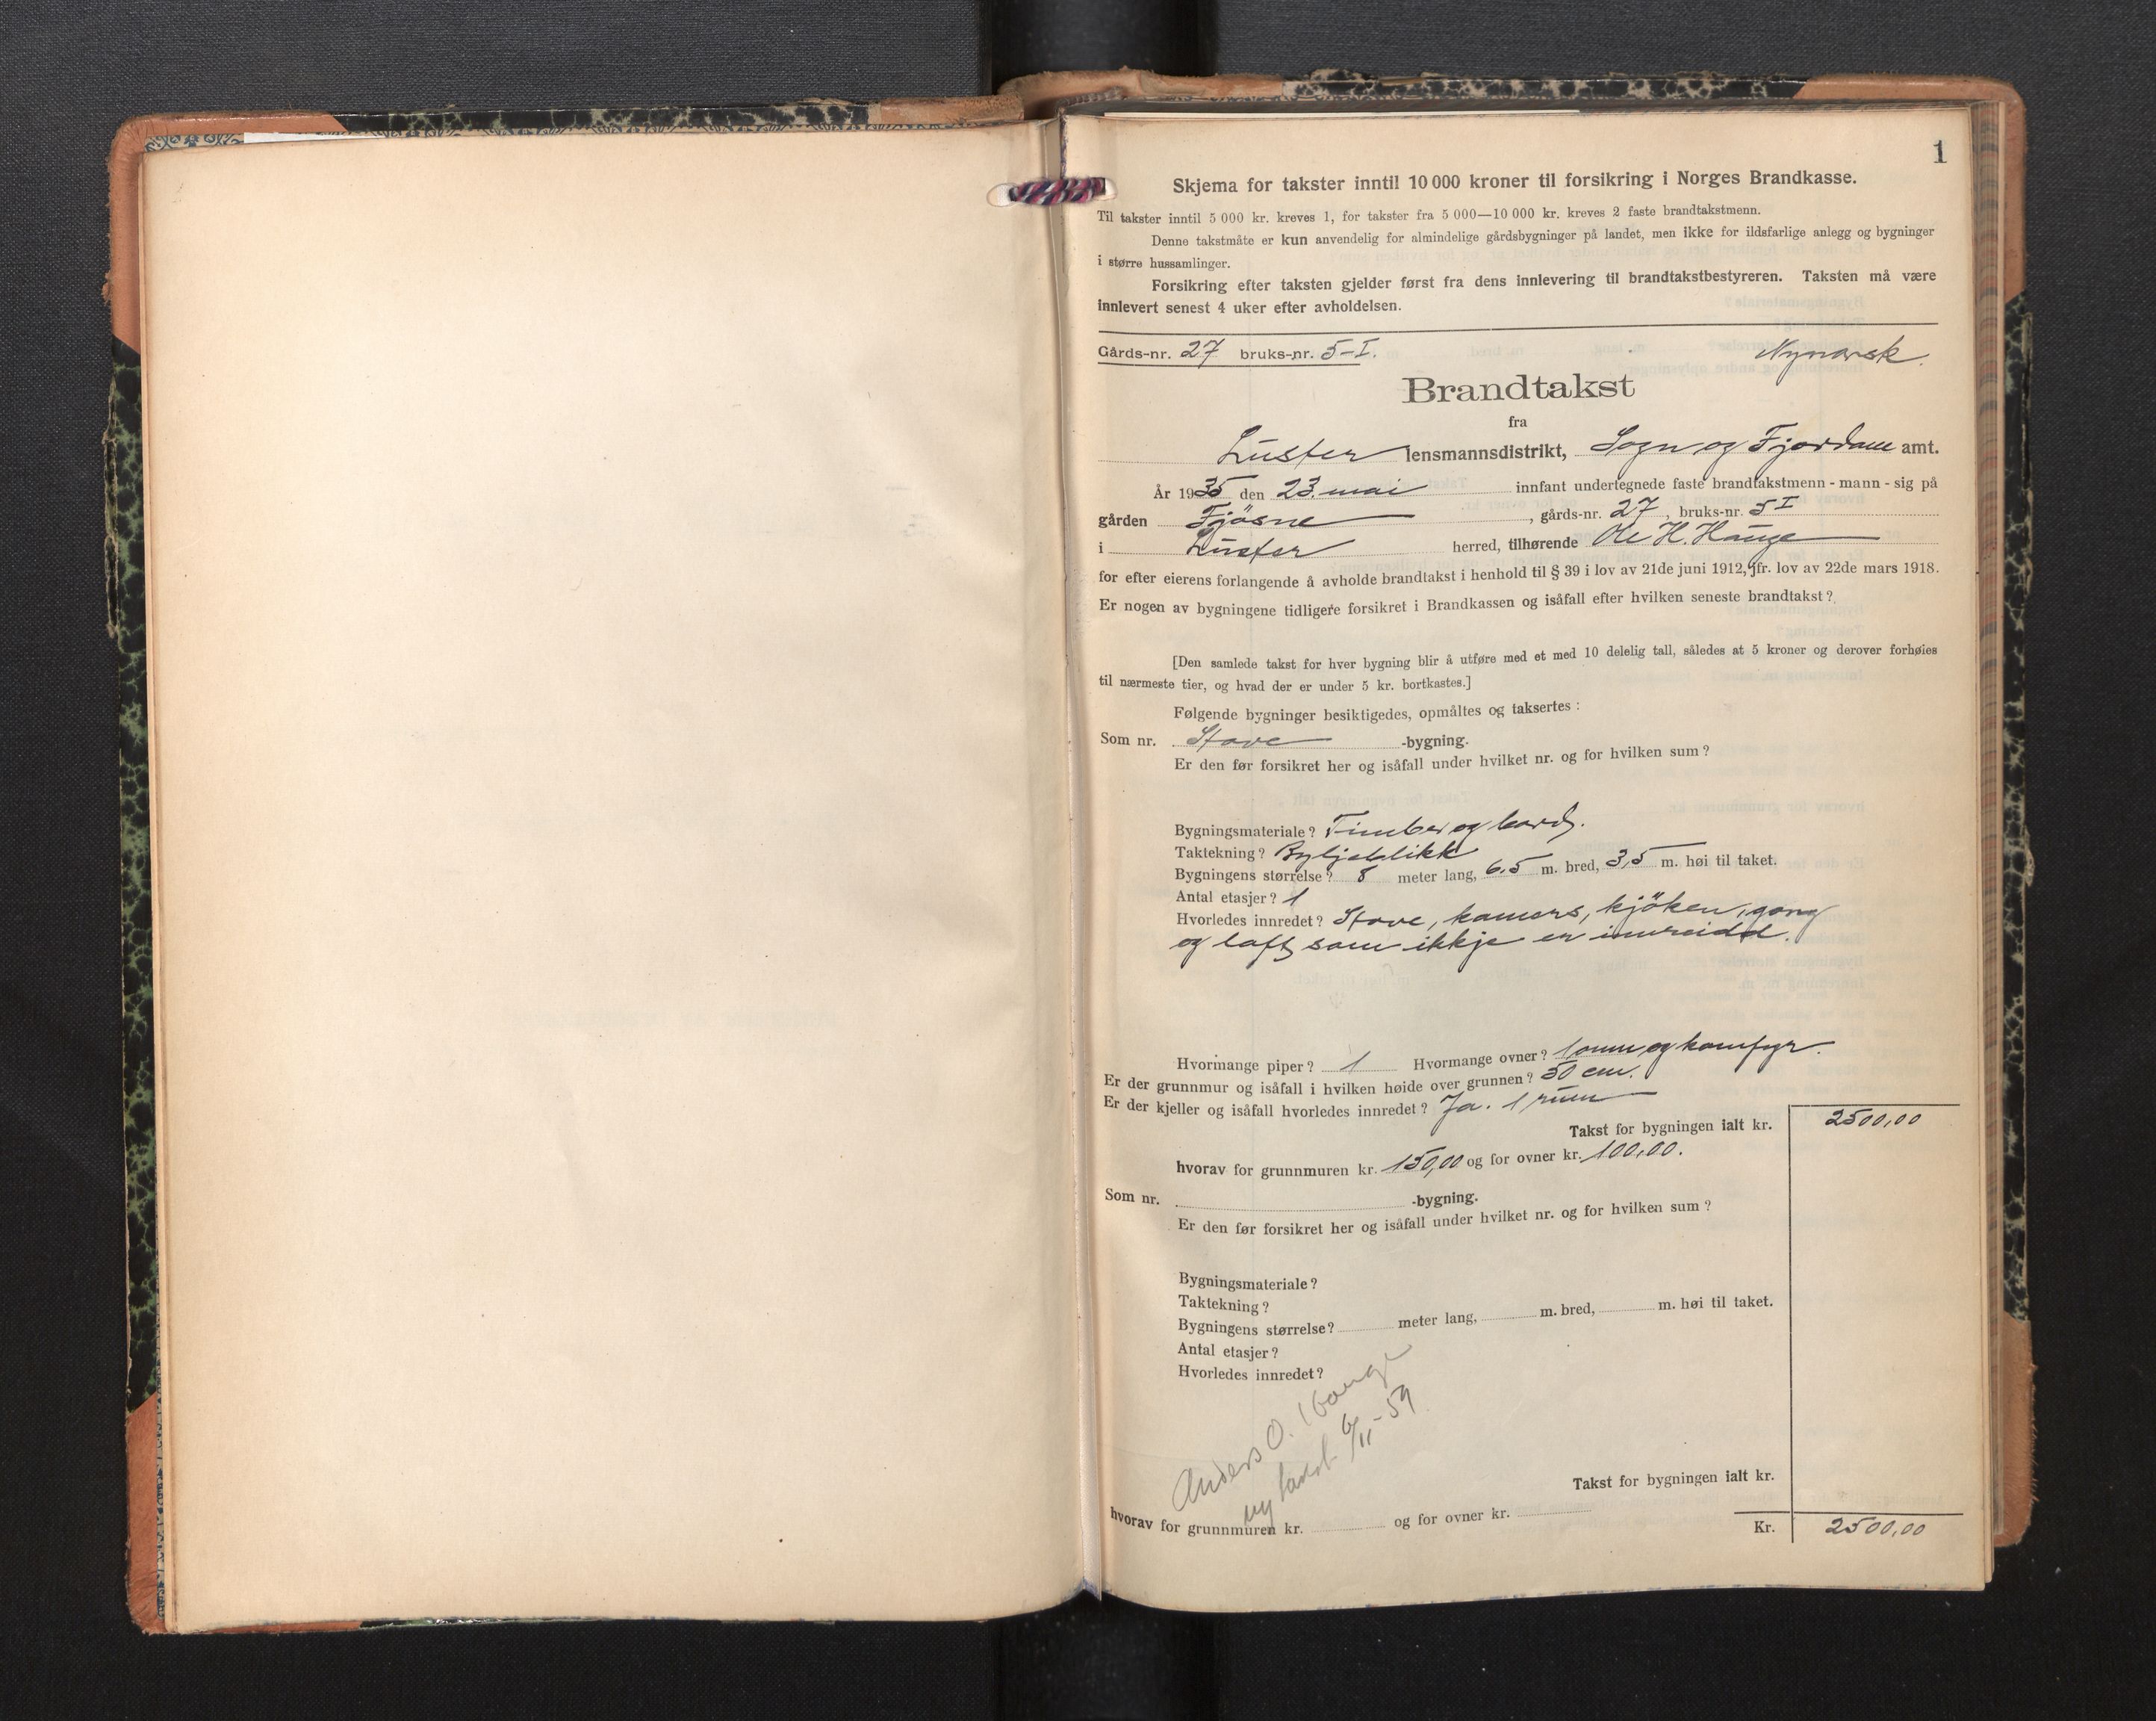 1
Skjema for takster inntil 10 000 kroner til forsikring i Norges Brandkasse.
Til takster inntil 5 000 kr. kreves 1, for takster fra 5 000—10 000 kr. kreves 2 faste brandtakstmenn.
Denne takstmåte er kun anvendelig for almindelige gårdsbygninger på landet, men ikke for ildsfarlige anlegg og bygninger
i større hussamlinger.
Forsikring efter taksten gjelder først fra dens innlevering til brandtakstbestyreren. Taksten må være
innlevert senest 4 uker efter avholdelsen.
Gårds-nr. 27 bruks-nr. 5-I. Nynorsk.
Brandtakst
fra
Luster lensmannsdistrikt, Sogn og Fjordane amt.
År 1935 den 23. mai innfant undertegnede faste brandtakstmenn - mann - sig på
gården Fjösne, gårds-nr. 27, bruks-nr. 5 I
i Luster herred, tilhørende Ole H. Hauge
for efter eierens forlangende å avholde brandtakst i henhold til § 39 i lov av 21de juni 1912, jfr. lov av 22de mars 1918.
Er nogen av bygningene tidligere forsikret i Brandkassen og isåfall efter hvilken seneste brandtakst?
[Den samlede takst for hver bygning blir å utføre med et med 10 delelig tall, således at 5 kroner og derover forhøies
til nærmeste tier, og hvad der er under 5 kr. bortkastes.]
Følgende bygninger besiktigedes, opmåltes og taksertes:
Som nr. Stove -bygning.
Er den før forsikret her og isåfall under hvilket nr. og for hvilken sum?
Bygningsmateriale? Timber og bord.
Taktekning? Bylgjeblikk
Bygningens størrelse? 8 meter lang, 6,5 m. bred, 3,5 m. høi til taket.
Antal etasjer? 1
Hvorledes innredet? Stove, kamers, kjöken, gang
og loft som ikkje er innreidd.
Hvormange piper? 1 Hvormange ovner? 1 omn og komfyr.
Er der grunnmur og isåfall i hvilken høide over grunnen? 50 cm.
Er der kjeller og isåfall hvorledes innredet? Ja. 1 rum
Takst for bygningen ialt kr. 2500,00
hvorav for grunnmuren kr. 150,00 og for ovner kr. 100,00.
Som nr. -bygning.
Er den før forsikret her og isåfall under hvilket nr. og for hvilken sum?
Bygningsmateriale?
Taktekning?
Bygningens størrelse? meter lang, m. bred, m. høi til taket.
Antal etasjer?
Hvorledes innredet?
Anders O. Hauge
ny takst 6/11-59
Takst for bygningen ialt kr.
hvorav for grunnmuren kr. og for ovner kr.
Kr. 2500,00